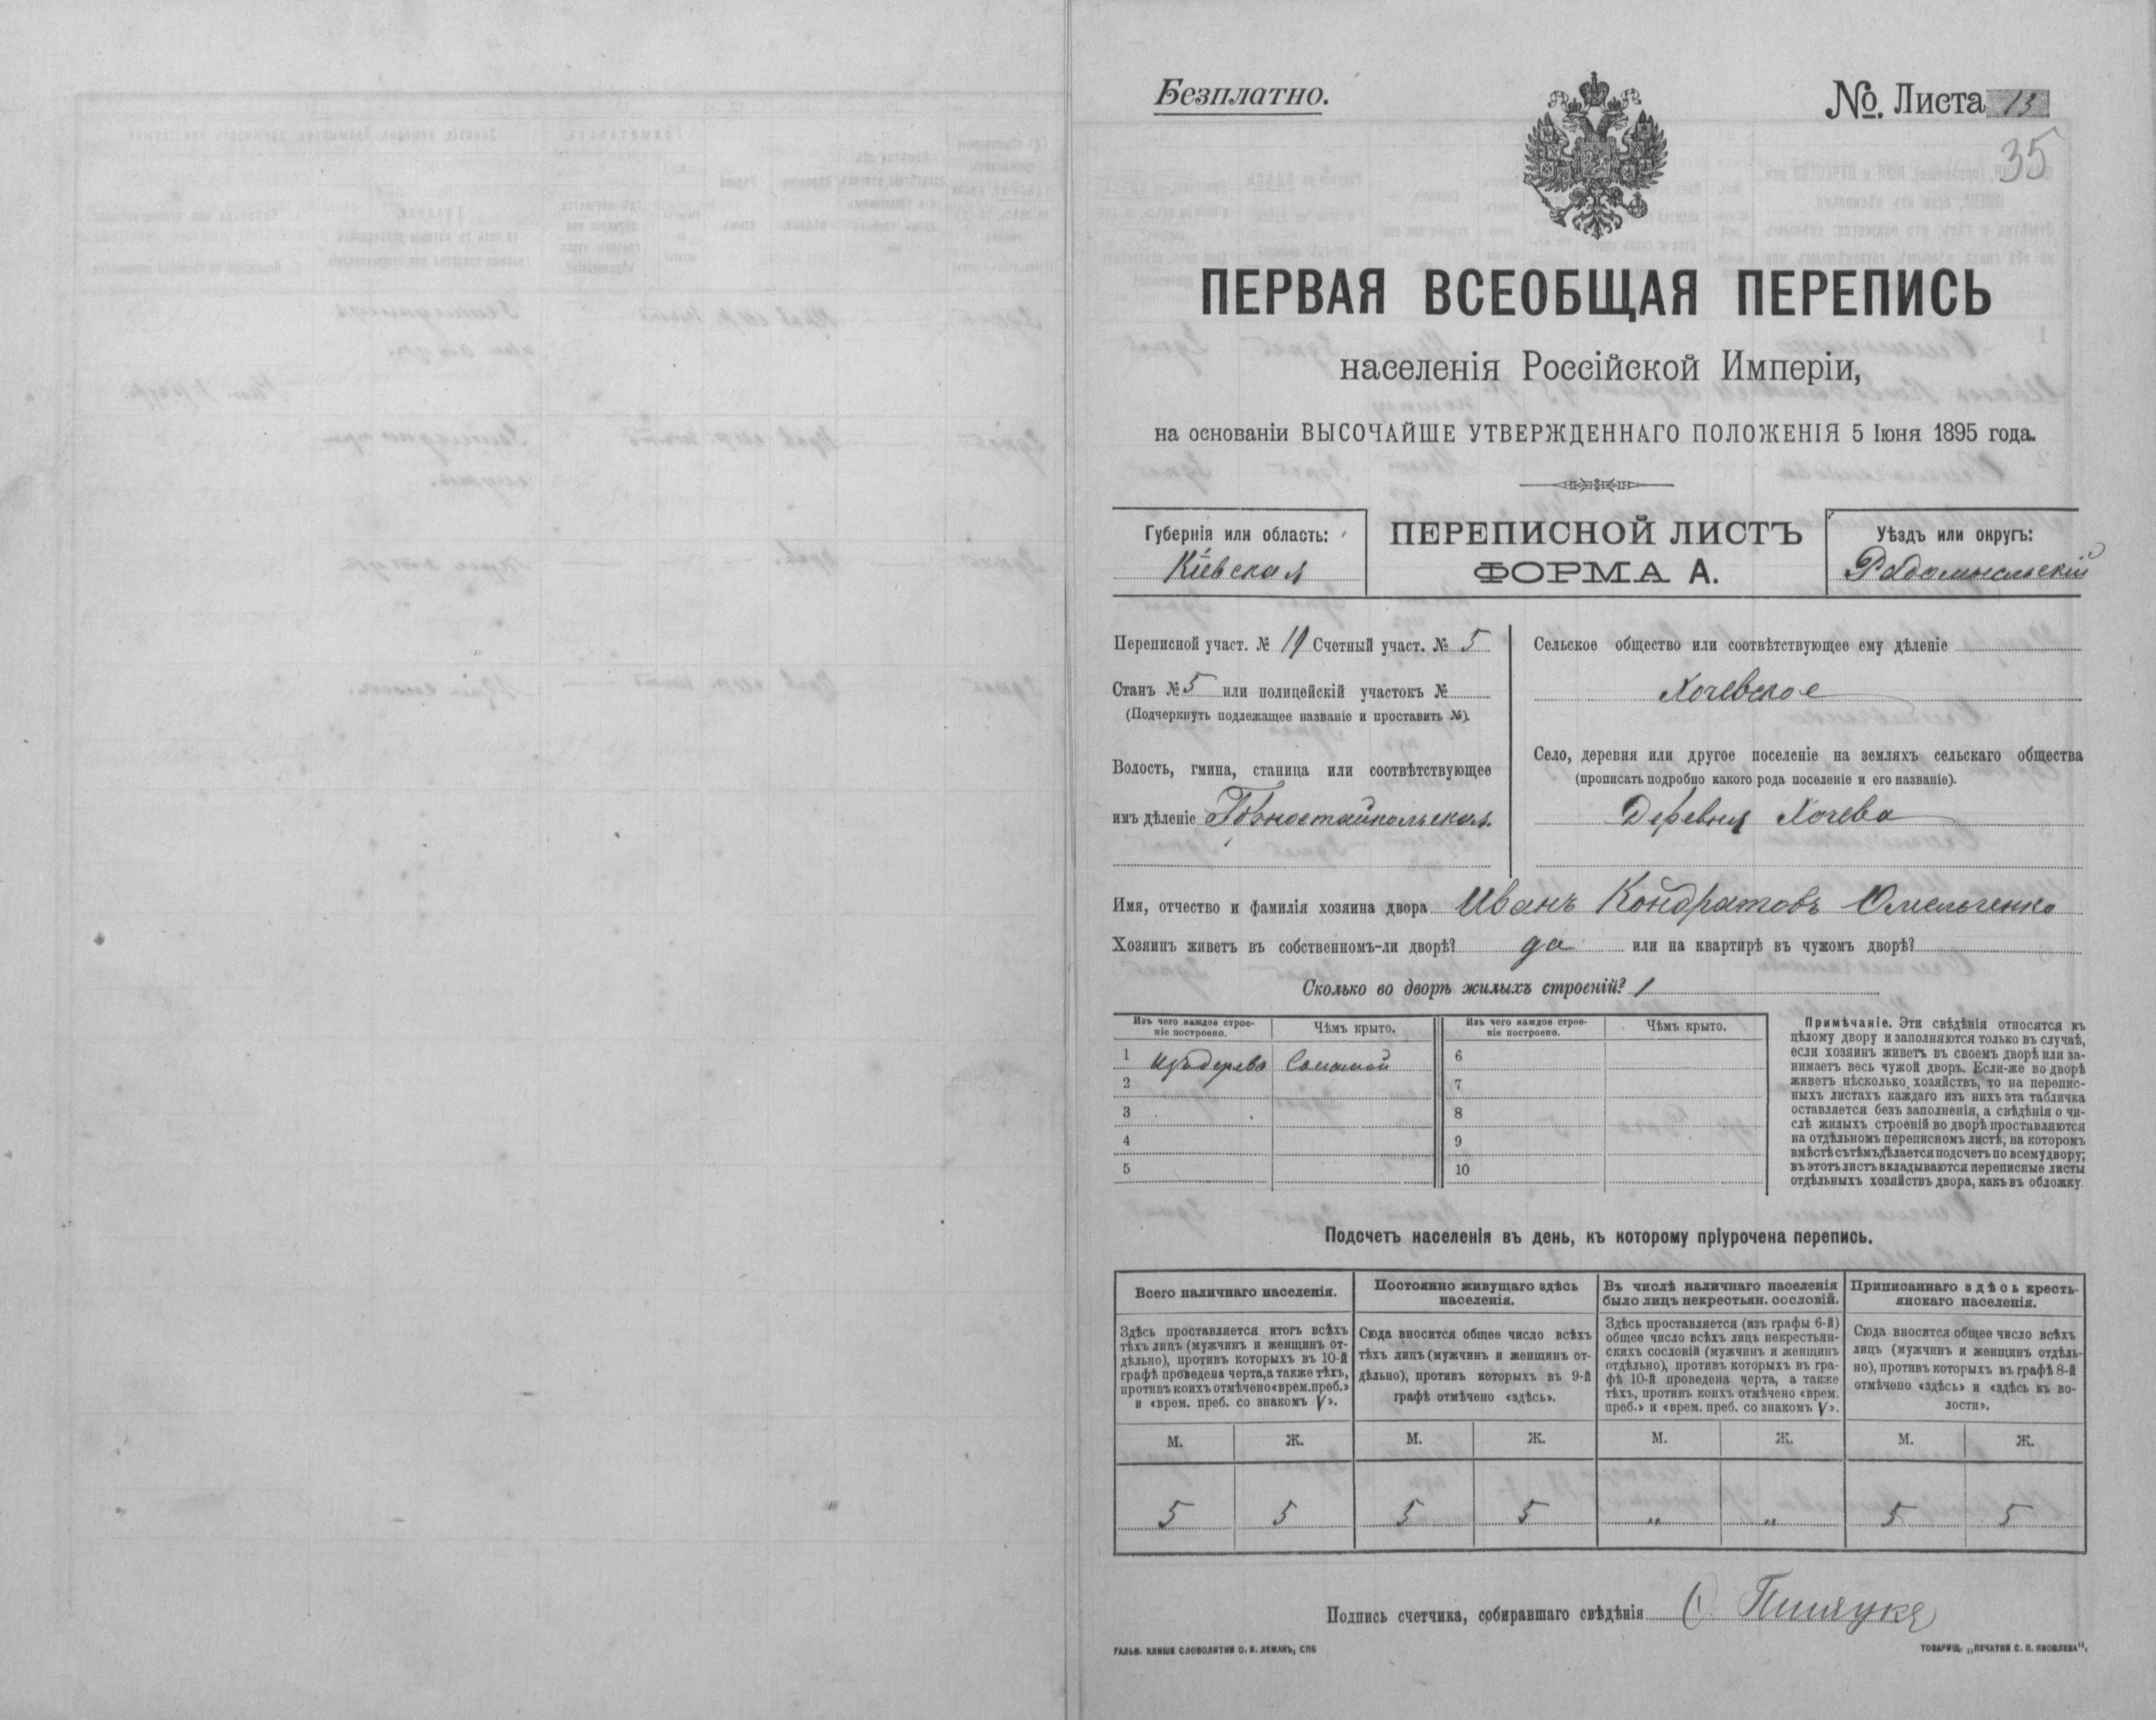 Безплатно.
№. Листа 13
35
ПЕРВАЯ ВСЕОБЩАЯ ПЕРЕПИСЬ
населенія Россійской Имперіи,
на основаніи ВЫСОЧАЙШЕ УТВЕРЖДЕННАГО ПОЛОЖЕНІЯ 5 Іюня 1895 года.
Губернія или область:
Кіевская
ПЕРЕПИСНОЙ ЛИСТЪ
ФОРМА А.
Уѣздъ или округъ:
Радомысльскій
Переписной участ. № 19 Счетный участ. № 5
Станъ № 5 или полицейскій участокъ №
(Подчеркнуть подлежащее названіе и проставить №).
Волость, гмина, станица или соотвѣтствующее
имъ дѣленіе Горностайпольская
Сельское общество или соотвѣтствующее ему дѣленіе
Хочевское
Село, деревня или другое поселеніе на земляхъ сельскаго общества
(прописать подробно какого рода поселеніе и его названіе).
Деревня Хочева
Имя, отчество и фамилія хозяина двора Иванъ Кондратовъ Омельченко
Хозяинъ живетъ въ собственномъ-ли дворѣ? да или на квартирѣ въ чужомъ дворѣ?
Сколько во дворѣ жилыхъ строеній? 1
Изъ чего каждое строе-
ніе построено.
Чѣмъ крыто.
Изъ чего каждое строе-
ніе построено.
Чѣмъ крыто.
1 Изъ дерева Соломой 6
2 7
3 8
4 9
5 10
Примѣчаніе. Эти свѣдѣнія относятся къ
цѣлому двору и заполняются только въ случаѣ,
если хозяинъ живетъ въ своемъ дворѣ или за-
нимаетъ весь чужой дворъ. Если-же во дворѣ
живетъ нѣсколько хозяйствъ, то на перепис-
ныхъ листахъ каждаго изъ нихъ эта табличка
оставляется безъ заполненія, а свѣдѣнія о чи-
слѣ жилыхъ строеній во дворѣ проставляются
на отдѣльномъ переписномъ листѣ, на которомъ
вмѣстѣ съ тѣмъ дѣлается подсчетъ по всему двору;
въ этотъ листъ вкладываются переписные листы
отдѣльныхъ хозяйствъ двора, какъ въ обложку.
Подсчетъ населенія въ день, къ которому пріурочена перепись.
Всего наличнаго населенія.
Здѣсь проставляется итогъ всѣхъ
тѣхъ лицъ (мужчинъ и женщинъ от-
дѣльно), противъ которыхъ въ 10-й
графѣ проведена черта, а также тѣхъ,
противъ коихъ отмѣчено «врем. преб.»
и «врем. преб. со знакомъ V».
Постоянно живущаго здѣсь
населенія.
Сюда вносится общее число всѣхъ
тѣхъ лицъ (мужчинъ и женщинъ от-
дѣльно), противъ которыхъ въ 9-й
графѣ отмѣчено «здѣсь».
Въ числѣ наличнаго населенія
было лицъ некрестьян. сословій.
Здѣсь проставляется (изъ графы 6-й)
общее число всѣхъ лицъ некрестьян-
скихъ сословій (мужчинъ и женщинъ
отдѣльно), противъ которыхъ въ гра-
фѣ 10-й проведена черта, а также
тѣхъ, противъ коихъ отмѣчено «врем.
преб.» и «врем. преб. со знакомъ V».
Приписаннаго здѣсь кресть-
янскаго населенія.
Сюда вносится общее число всѣхъ
лицъ (мужчинъ и женщинъ отдѣль-
но), противъ которыхъ въ графѣ 8-й
отмѣчено «здѣсь» и «здѣсь къ во-
лости».
М. Ж. М. Ж. М. Ж. М. Ж.
5 5 5 5 „ „ 5 5
Подпись счетчика, собиравшаго свѣдѣнія
ГАЛЬВ. КЛИШЕ СЛОВОЛИТНИ О. И. ЛЕМАНЪ, СПБ
ТОВАРИЩ. „ПЕЧАТНЯ С. П. ЯКОВЛЕВА".